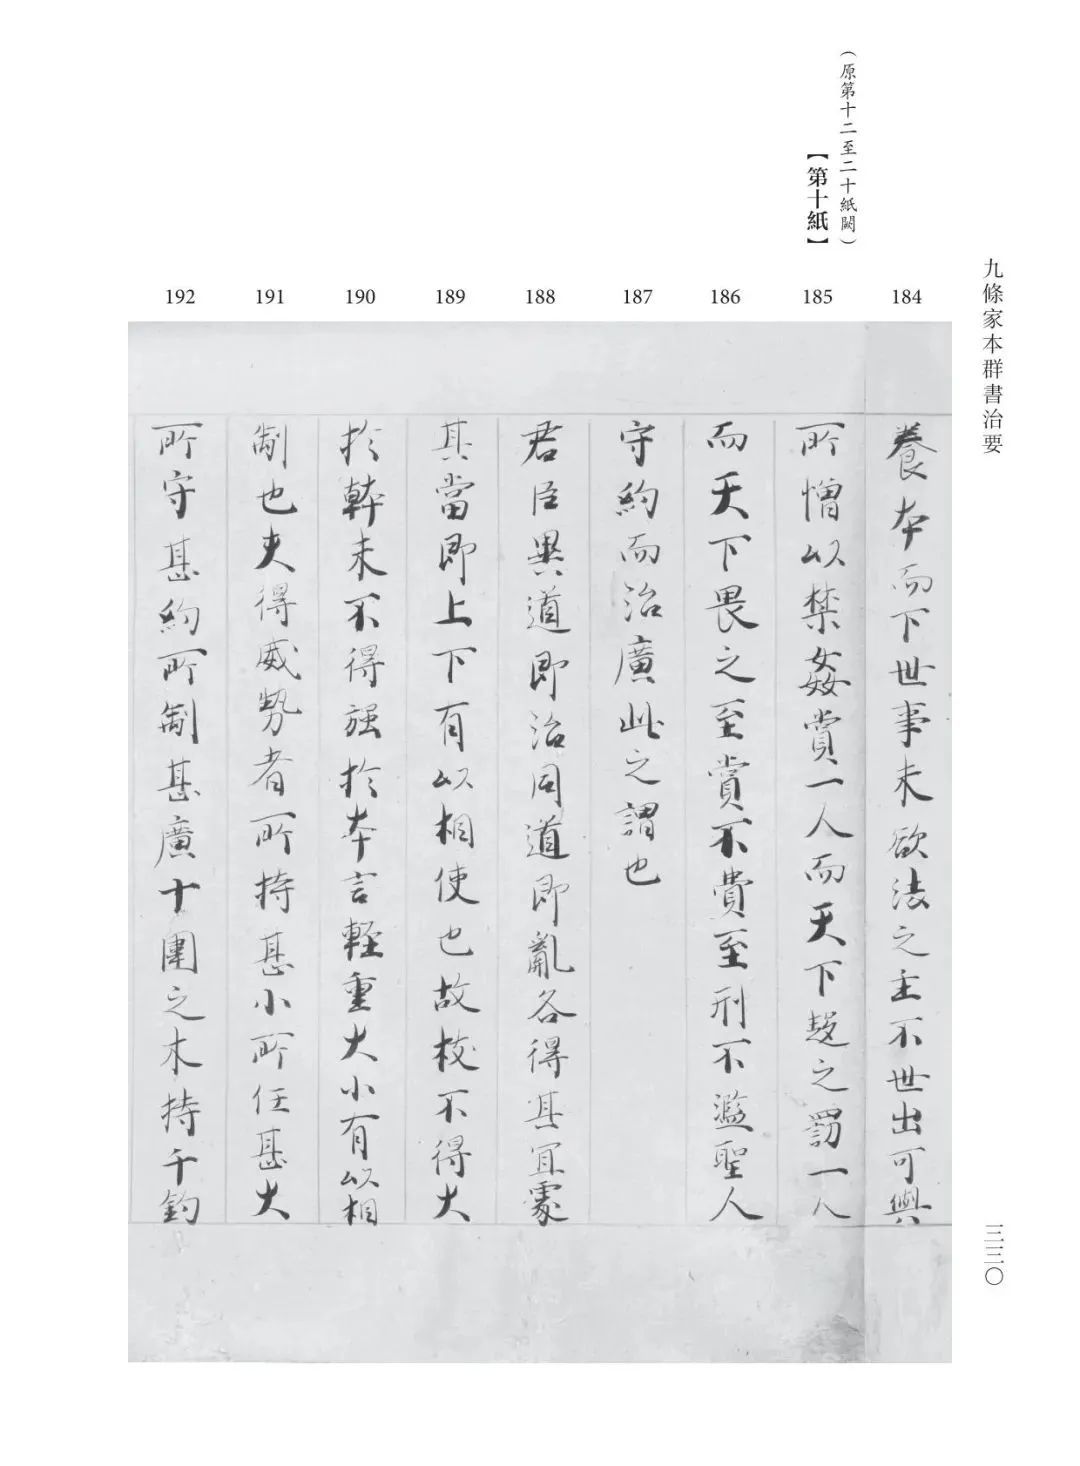 九條家本群書治要
三三〇
（原第十二至二十紙闕）
【第十紙】
184
養本而下世事末欲法之主不世出可與
185
所憎以禁姦賞一人而天下趍之罰一人
186
而天下畏之至賞不費至刑不濫聖人
187
守約而治廣此之謂也
188
君臣異道即治同道即亂各得其宜處
189
其當即上下有以相使也故枝不得大
190
於幹末不得強於本言輕重大小有以相
191
制也夫得威勢者所持甚小所任甚大
192
所守甚約所制甚廣十圍之木持千鈞